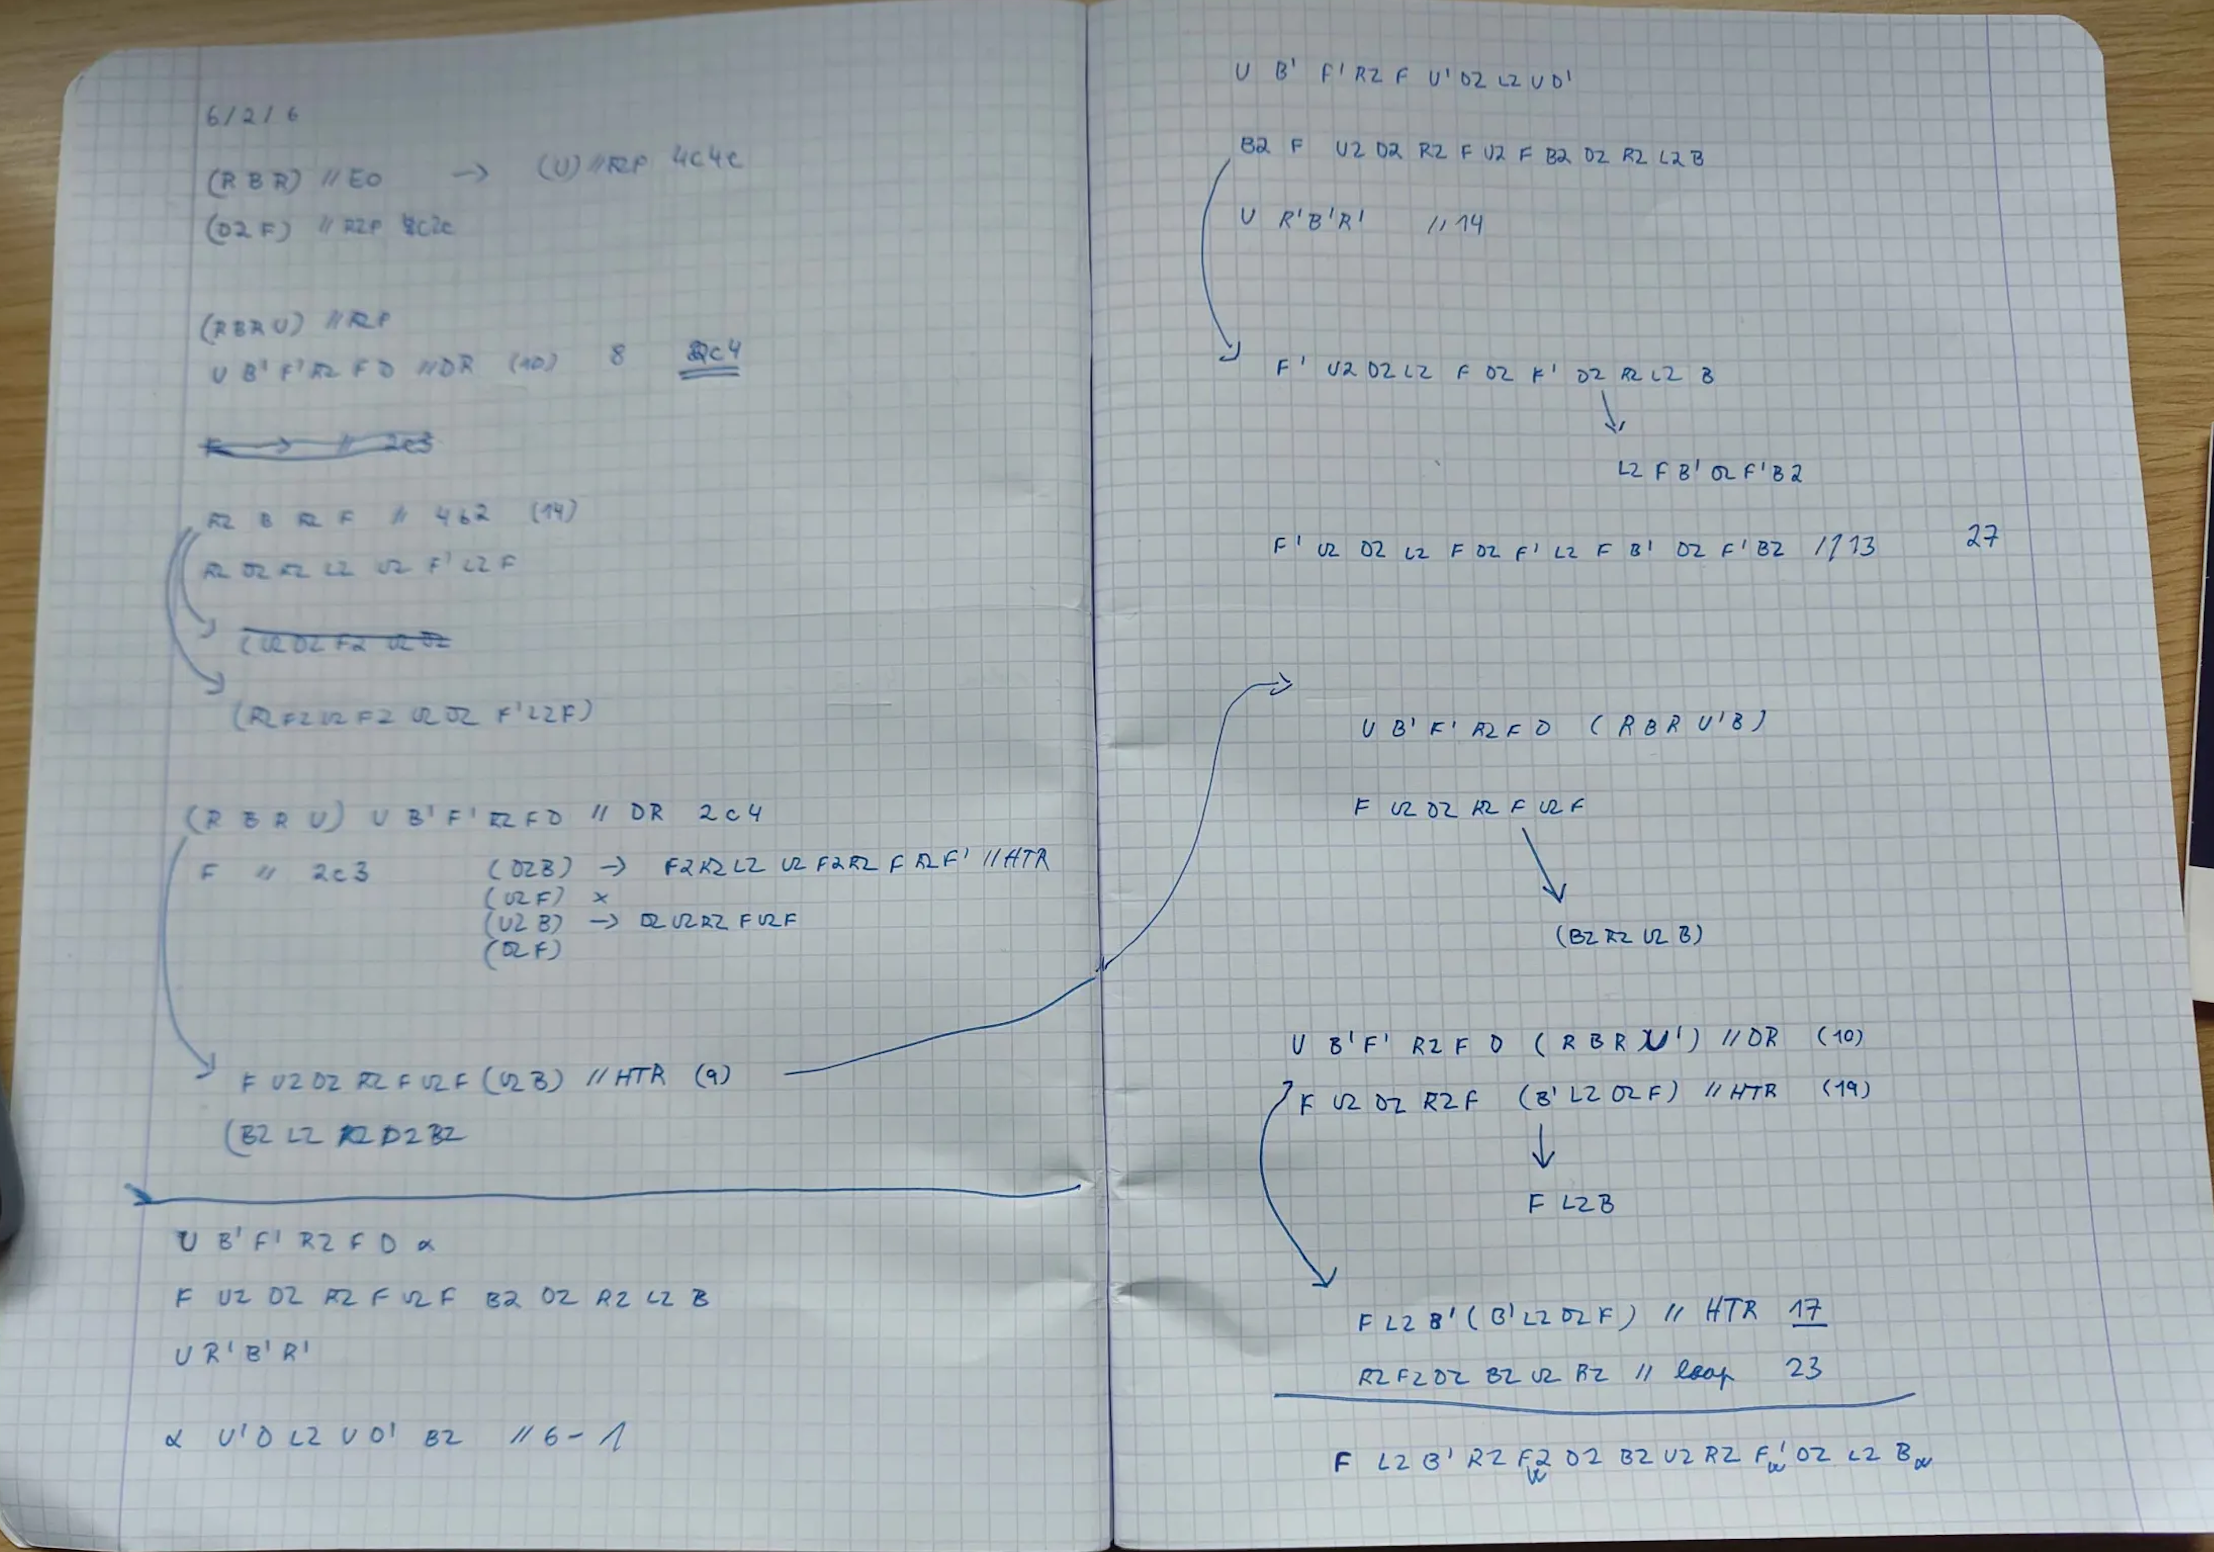 6/2/6
(R B R) // EO → (U) // RZP 4c4e
(D2 F) // RZP 8c2e
(R B R U) // RZP
U B' F' R2 F D // DR (10) 8 2c4
F → // 2c3
R2 B R2 F // 4b2 (14)
R2 D2 R2 L2 U2 F' L2 F
(U2 D2 F2 U2 D2
(R2 F2 U2 F2 U2 D2 F' L2 F)
(R B R U) U B' F' R2 F D // DR 2c4
F // 2c3 (D2 B) → F2 R2 L2 U2 F2 R2 F R2 F' // HTR
(U2 F) x
(U2 B) → D2 U2 R2 F U2 F
(D2 F)
F U2 D2 R2 F U2 F (U2 B) // HTR (9)
(B2 L2 R2 D2 B2
U B' F' R2 F D α
F U2 D2 R2 F U2 F B2 D2 R2 L2 B
U R' B' R'
α U' D L2 U D' B2 // 6 - 1
U B' F' R2 F U' D2 L2 U D'
B2 F U2 D2 R2 F U2 F B2 D2 R2 L2 B
U R' B' R' // 14
F' U2 D2 L2 F D2 F' D2 R2 L2 B
L2 F B' D2 F' B2
F' U2 D2 L2 F D2 F' L2 F B' D2 F' B2 // 13 27
U B' F' R2 F D (R B R U' B)
F U2 D2 R2 F U2 F
(B2 R2 U2 B)
U B' F' R2 F D (R B R U') // DR (10)
F U2 D2 R2 F (B' L2 D2 F) // HTR (19)
F L2 B
F L2 B' (B' L2 D2 F) // HTR 17
R2 F2 D2 B2 U2 R2 // leap 23
F L2 B' R2 F2 D2 B2 U2 R2 F' D2 L2 B